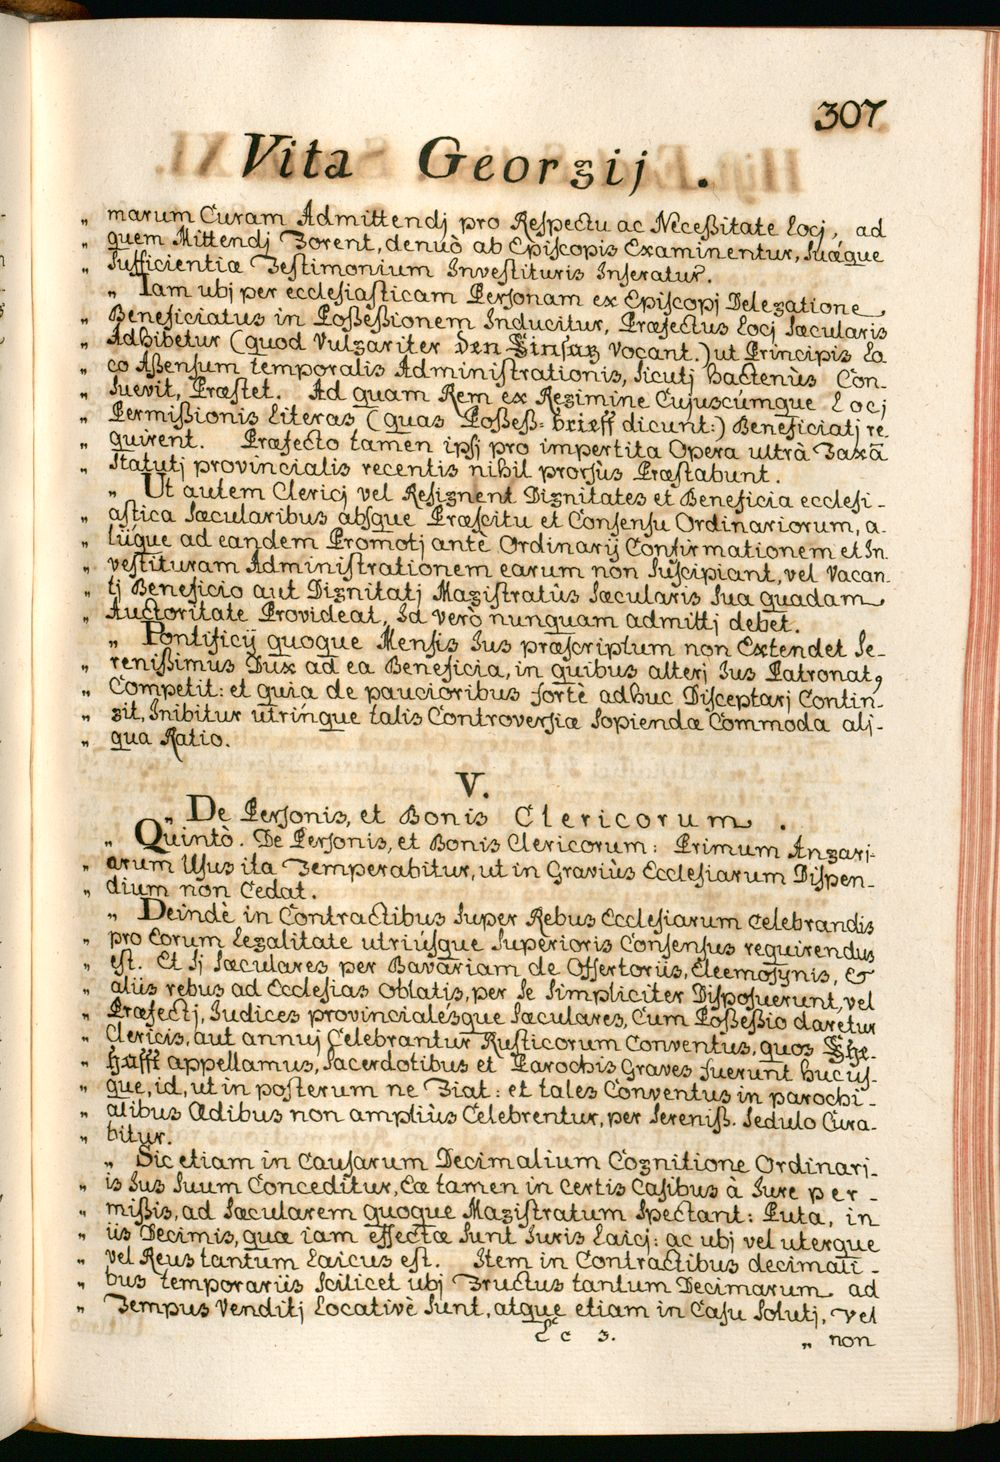 307
Vita Georgij .
„ marum Curam Admittendj pro Respectu ac Necessitate Locj, ad
„ quem Mittendj Forent, denuò ab Episcopis Examinentur, suáque
„ Sufficientiæ Testimonium Investituris Inseratur.
„ „ Iam ubj per ecclesiasticam Personam ex Episcopj Delegatione
„ Beneficiatus in Poßeßionem Inducitur, Præfectus Locj Sæcularis
„ Adhibetur (quod Vulgariter den Vocant.) ut Principis Lo
„ co Aßensum temporalis Administrationis, sicutj hactenùs Con-
„ suevit, Præstet. Ad quam Rem ex Regimine Cujuscúmque Locj
„ Permißionis Literas (quas Poßeß=brieff dicunt:) Beneficiatj re-
„ quirent. Præfecto tamen ipsj pro impertita Opera ultrà Taxã
„ Statutj provincialis recentis nihil prorsùs Præstabunt.
„ „ Ut autem Clericj vel Resignent Dignitates et Beneficia ecclesi-
„ astica Sæcularibus absque Præscitu et Consensu Ordinariorum, a-
„ liíque ad eandem Promotj antè Ordinarij Confirmationem et In
„ vestituram Administrationem earum non Suscipiant, vel Vacan-
„ tj Beneficio aut Dignitatj Magistratùs Sæcularis sua quadam
„ Auctoritate Provideat, Id verò nunquam admittj debet.
„ „ Pontificij quoque Mensis Jus præscriptum non Extendet Se-
„ renißimus Dux ad ea Beneficia, in quibus alterj Jus Patronatꝰ
„ Competit: et quia de paucioribus fortè adhuc Disceptarj Contin-
„ git, Inibitur utrínque talis Controversiæ Sopiendæ Commoda alj-
„ qua Ratio.
V.
„ De Personis, et Bonis Clericorum .
„ Quintò. De Personis, et Bonis Clericorum: Primum Angarj-
„ arum Usus ita Temperabitur, ut in Graviùs Ecclesiarum Dispen-
„ dium non Cedat.
„ „ Deindè in Contractibus super Rebus Ecclesiarum Celebrandis
„ pro Eorum Legalitate utriúsque Superioris Consensus requirendus
„ est. Et sj Sæculares per Bavariam de Offertoriis, Eleemosynis, &
„ aliis rebus ad Ecclesias Oblatis, per se simpliciter Disposuerunt, vel
„ Præfectj, Judices provincialesque Sæculares, Cum Poßeßio daretur
„ Clericis, aut annuj Celebrantur Rusticorum Conventus, quos Ehe-
„ hafft appellamus, Sacerdotibus et Parochis Graves fuerunt hucus-
„ que, id, ut in posterum ne Fiat: et tales Conventus in parochi-
„ alibus Ædibus non ampliùs Celebrentur, per Sereniß. Sedulo Cura-
„ bitur.
„ „ Sic etiam in Causarum Decimalium Cognitione Ordinarj-
„ is Jus suum Conceditur, Eæ tamen in Certis Casibus à Jure per-
„ mißis, ad Sæcularem quoque Magistratum Spectant: Puta, in
„ iis Decimis, quæ iam effectæ sunt Juris Laicj: ac ubj vel uterque
„ vel Reus tantùm Laicus est. Item in Contractibus decimali-
„ bus temporariis scilicet ubj Fructus tantum Decimarum ad
„ Tempus Venditj Locativè sunt, atque etiam in Casu Solutj, vel
Cc 3.
„ non